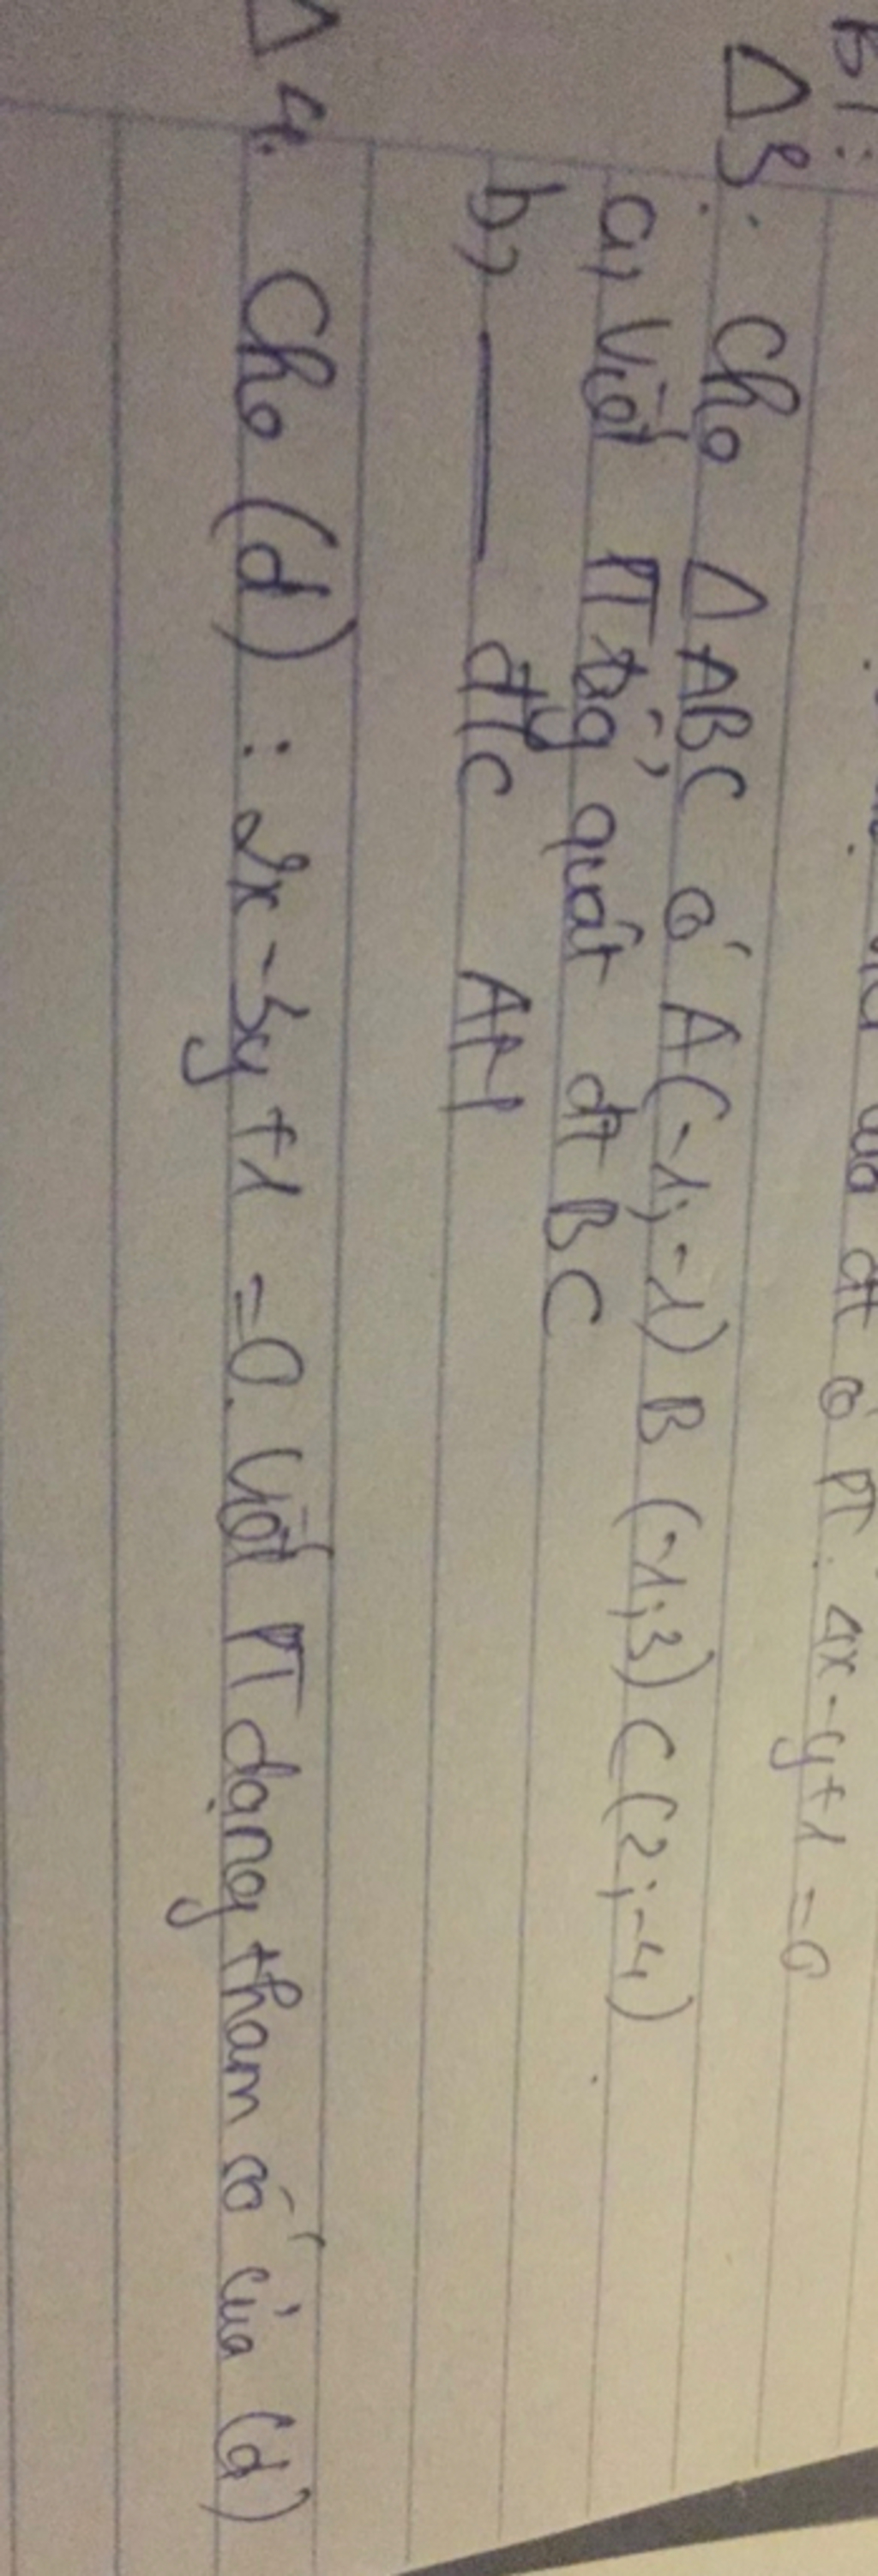 đt có PT: 4x-y+1=0
B1:
Δ3: Cho Δ ABC có A(-1;-1) B(-1;3) C(2;-4)
a, Viết PT tổng quát đt BC
b, đg c AH
Δ4. Cho (d): 2x-3y+1=0. Viết PT dạng tham số của (d)